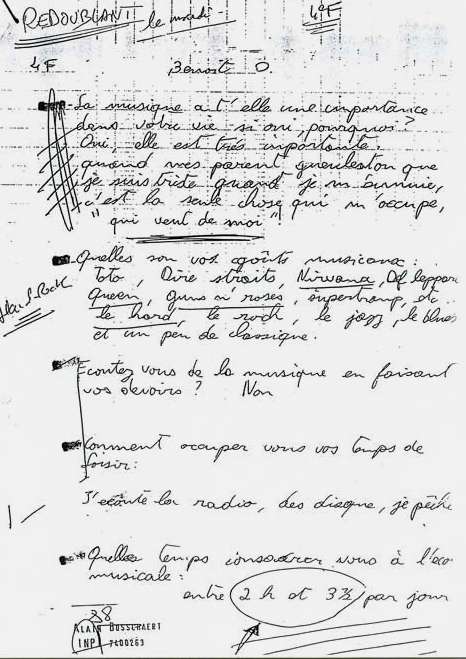 REDOUBLANT le mardi
4°F
4F Benoit O.
La musique a t'elle une importance
dans votre vie si oui, pourquoi?
Oui, elle est très importante.
quand mes parent que
je suis triste quand je m'ennuie,
c'est la seule chose qui m'occupe,
"qui vent de moi"
Quelles son vos goûts musicaux:
Toto, Dire straits, Nirwana, Def leppard
Hard Rock
Queen, guns n' roses, supertramp, etc.
le hard, le rock, le jazz, le blues
et un peu de classique.
Ecoutez vous de la musique en faisant
vos devoirs? Non
Comment occuper vous vos temps de
loisir:
J'écoute la radio, des disque, je pêche
Quelles temps consacrer vous à l'éco
musicale:
entre 2 h et 3 ½ par jour
28
ALAIN BOSSCHAERT
INP 7400263